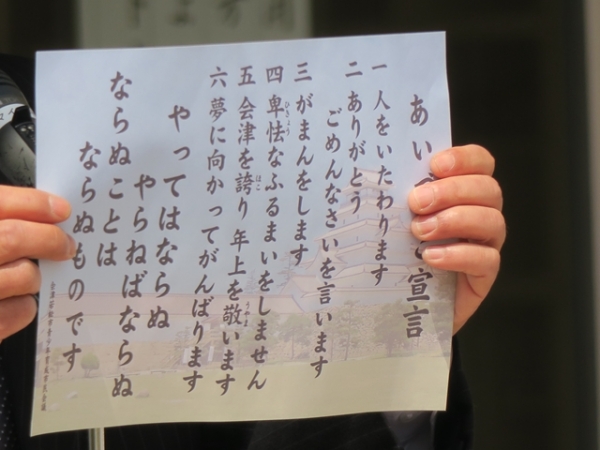 あい
宣言
一 人をいたわります
二 ありがとう
ごめんなさいを言います
三 がまんをします
四 卑怯なふるまいをしません
ひきょう
五 会津を誇り 年上を敬います
ほこ
うやま
六 夢に向かってがんばります
やってはならぬ
やらねばならぬ
ならぬことは
ならぬものです
会津若松市青少年育成市民会議